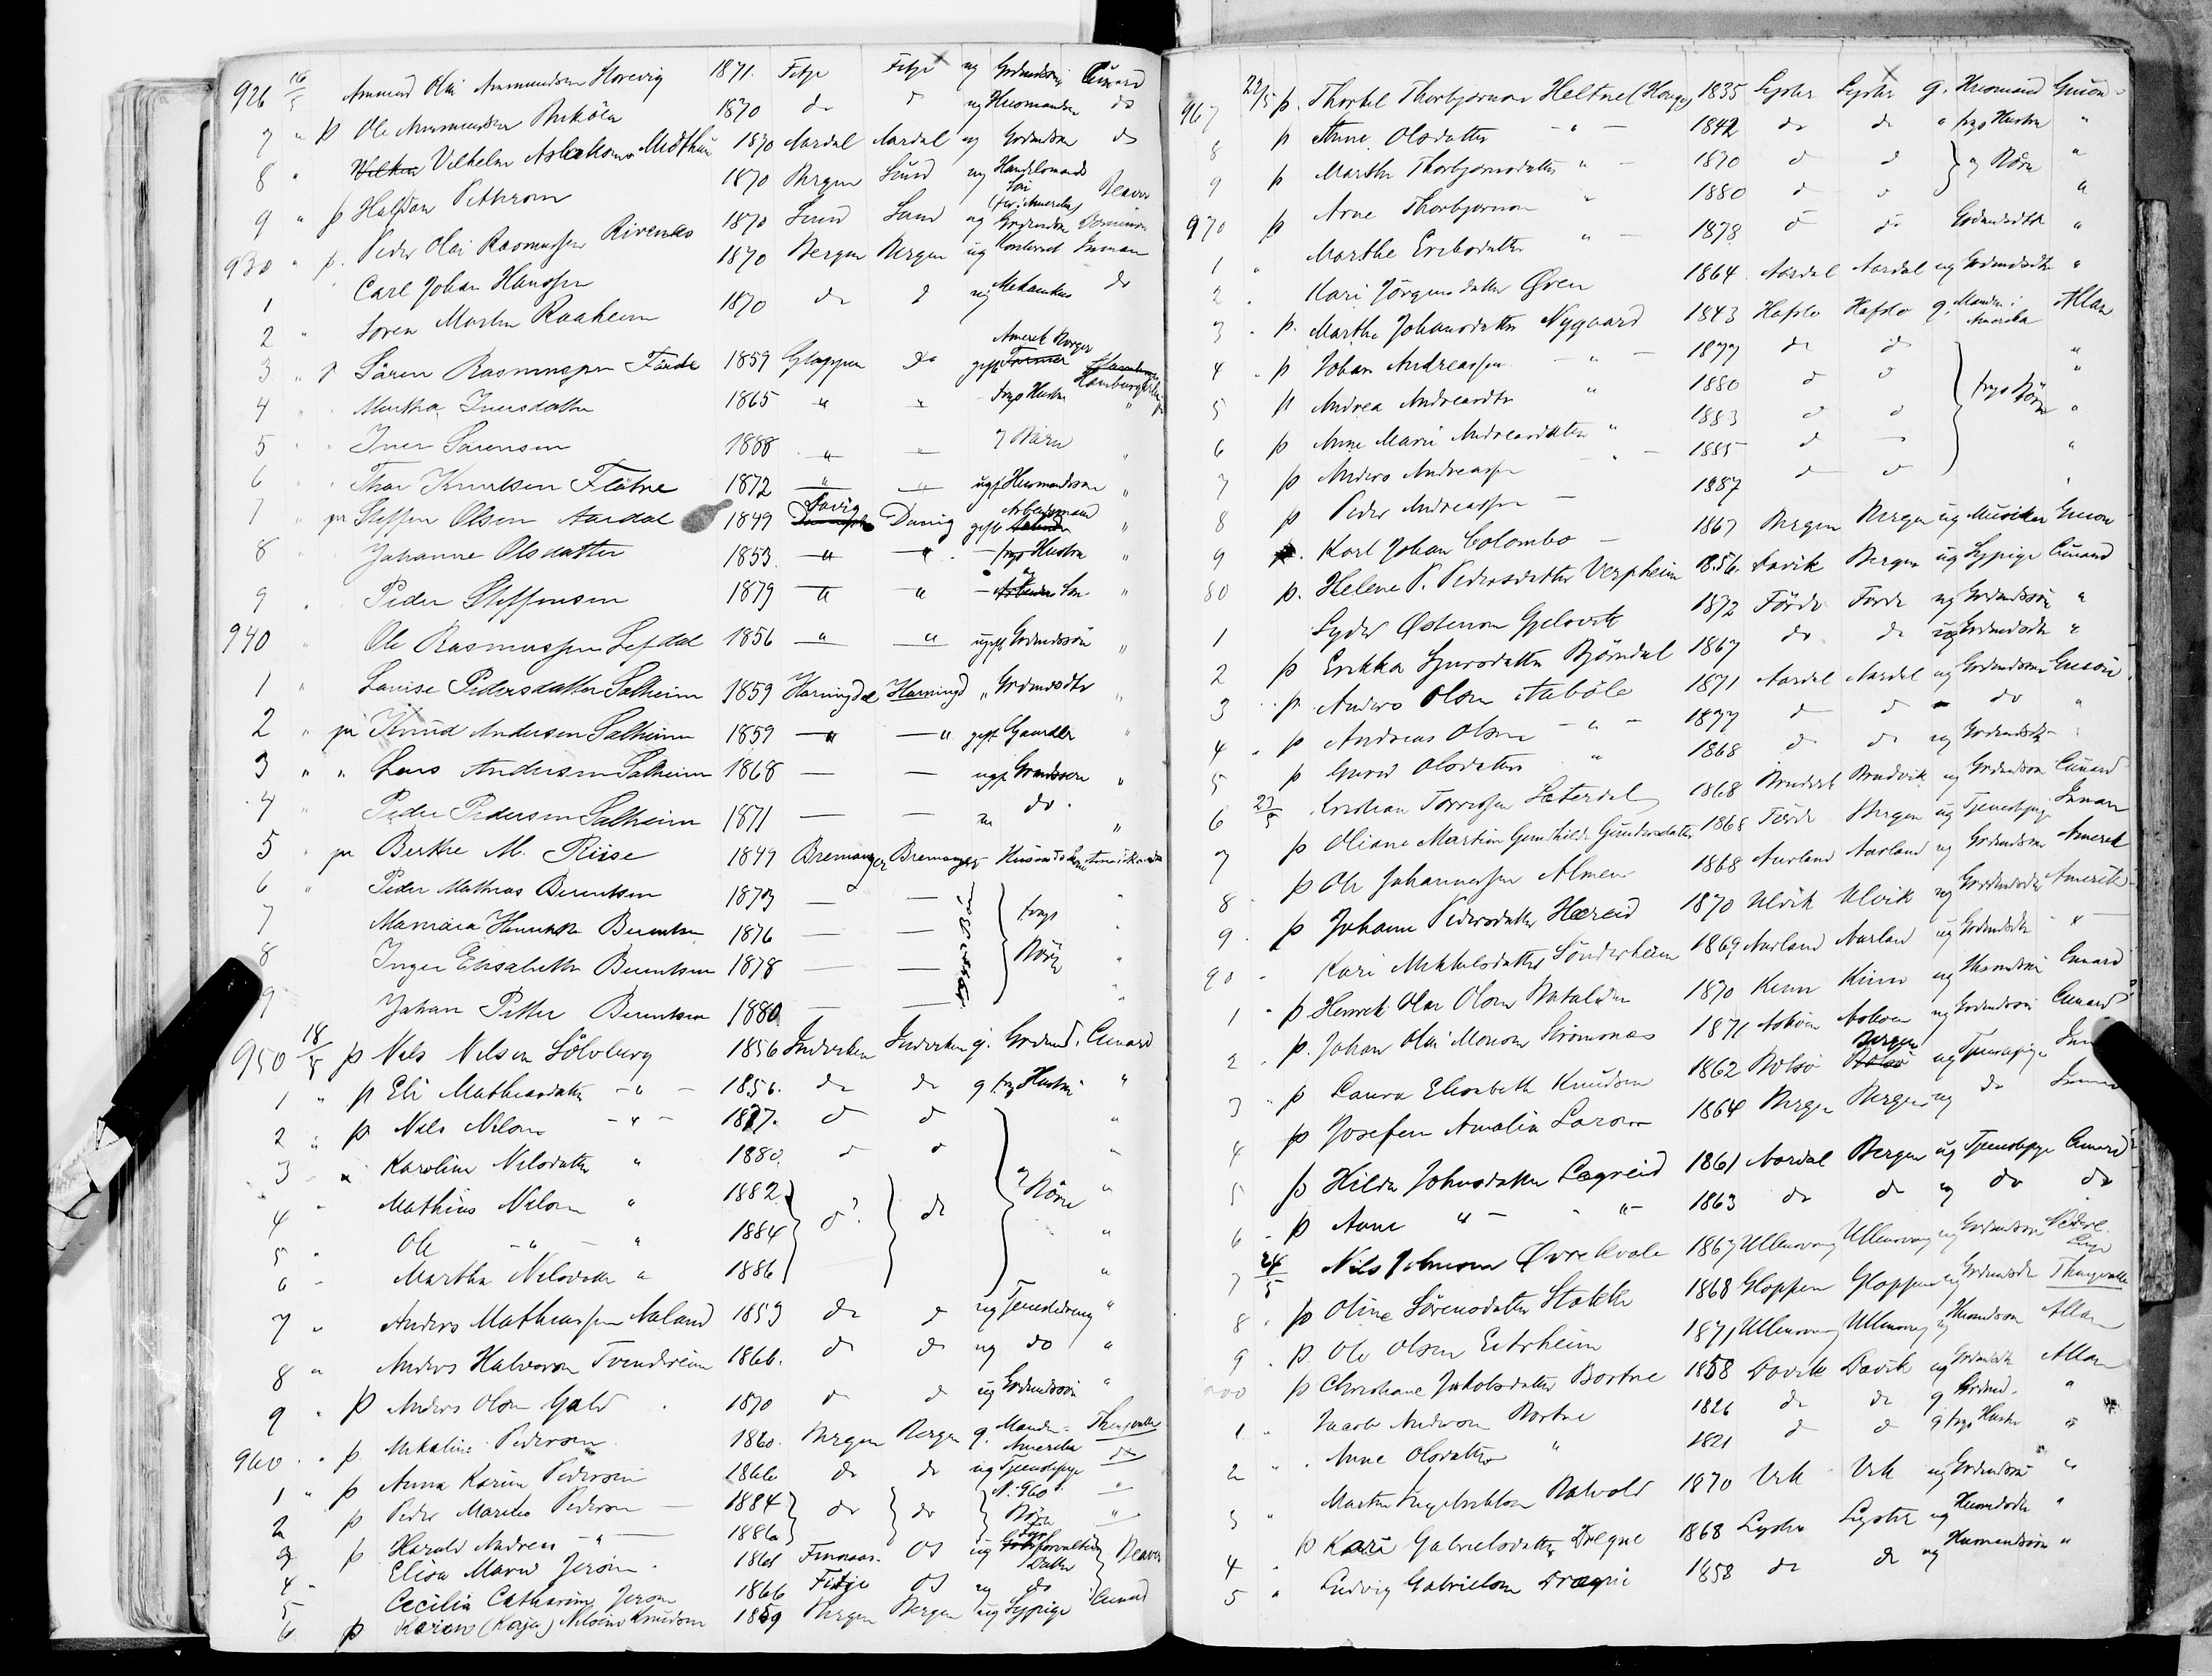 926 16/5 Ammund Olai Ammundsen Storevig 1871. Fitje Fitje ug Grdmdssøn Cunard
7 " p Ole Ammundsen 1870 do d ug Husmandss do
8 " Vilhelm Midthun 1870 Aardal Aardal ug Grdmdssøn do
9 " p Halfdan Pettersen 1870 Bergen Sund ug Handelsmands Søn Beaver
930 " p. Peder Olai Rasmussen Rivenes 1870 Sund Sund ug Grdmdssøn Dominion
1 Carl Johan Hanssen 1870 Bergen Bergen ug Kontorist Inman
2 " Søren Martin Raaheim 1870 do d ug Mekanikus do
3 " p Sören Rasmussen Förde 1859 Gloppen do gift Amerik Borger Hamburger
4 " Martha Iversdatter 1865 " " frgs Hustru "
5 " Iver Sörensen 1888 " " Barn "
6 " Thor Knutsen Flötne 1872 " " ugf Husmandssøn "
7 " pr Steffen Olsen Aardal 1849 Davig Davig gift Arbeidsmand "
8 " Johanne Olsdatter 1853 " " frgs Hustru "
9 " Peder Steffensen 1879 " " Søn "
940 " Ole Rasmussen Lefdal 1856 " " ugift Grdmdssön "
1 " Lovise Pedersdatter Salheim 1859 Horningdal Horningd " Grdmdsdtr "
2 " pr Knud Andersen Salheim 1859 " " gift Gaardbr "
3 " " Lars Andersen Salheim 1868 — — ugf Grmdssøn "
4 " Peder Pedersen Salheim 1871 — — do. "
5 " pr Berthe M. Riise 1849 Bremanger Bremanger
6 " Peder Mathias Berentsen 1873 — — frgs Börn "
7 Berentsen 1876 — — "
8 Inger Elisabeth Berentsen 1878 — — "
9 Johan Petter Berentsen 1880 — — "
950 18/5 p Nils Nilsen Sölvberg 1856 Inderviken Inderviken g. Grdmd. Cunard
1 " p Eli Mathiasdatter " 1856. do do g frgs Hustru "
2 " p Nils Nilsen " d d "
3 " Karoline Nilsdatter " 1880. d d "
4 " Mathias Nilsen " 1882 d do Börn "
5 " Ole " " 1884 "
6 " Martha Nilsdatter " 1886 "
7 " Anders Mathiassen Aaland 1859 do d ug Tjenestedreng "
8 " Anders Halvorsen 1866. d do ug do "
9 " p Anders Olsen Gald 1870 d d ug Grdmdssøn "
960 " p Mekaline Pedersen 1860. Bergen Bergen g. Manden i Amerika Thingvalla
1 " p Anna Karine Pedersen 1866 do do ug Tjenestepige do
2 p Peder Marius Pedersen 1884 do do N. 960s Börn "
3 p Harald Andreas " 1886 "
4 " Elisa Marie Jersin 1861 Finnaas. Os ug Datter Beaver
5 Cecilia Catharine Jersin 1866 Fitje Os ug do
6 p Karine (Kaja) Nilsine Knudsen 1859 Bergen Bergen ug Sypige Cunard
967 22/5 p. Thorkel Thorbjørnsen Heltne (Hauge) 1835 Lyster Lyster g. Husmand Guion
8 p Anne Olsdatter " 1842 do do " frgs Hustru "
9 p Marthe Thorbjørnsdatter " 1870 d d Börn "
970 p Arne Thorbjørnsen " 1880 d d "
1 " Marthe Eriksdatter " 1873 d do Grdmdsdtr "
2 " Kari Jørgensdatter Øren 1864 Aardal Aardal ug Grdmdsdtr "
3 " p. Marthe Johansdatter Nygaard 1843 Hafslo Hafslo g. Manden i Amerika Allan
4 " p Johan Andreassen " 1877 do d "
5 p Andrea Andreasdtr " 1880 d d frgs Börn "
6 p Anne Marie Andreasdatter " 1883 d d "
7 p Anders Andreassen " 1885 d — "
8 p Peder Andreassen — 1887 d d "
9 p. Karl Johan Colombo — 1867 Bergen Bergen ug Musiker Guion
80 p. Helene P. Pedersdatter 1856. Davik Bergen ug Sypige Cunard
1 Lyder Østensen Gjelsvik 1872 Förde Förde ug Grdmdssøn "
2 p Erikka Sjursdatter Björndal 1867 do do ug Grdmdsdtr "
3 " p. Anders Olsen Aaböle 1871 Aardal Aardal ug Grdmdssøn Guion
4 " p Andreas Olsen " 1877 d d do "
5 p Guro Olsdatter " 1868 d do ug Grdmdsdtr "
6 23/5 Kristian Torressen Sæterdal 1868 Brudvik Brudvik ug Grdmdssøn Cunard
7 p Oliane Martine Gunhilde Gundersdatter 1868 Förde Bergen ug Tjenestepig Inman
8 " p Ole Johannessen Almen 1868 Aurland Aurland ug Grdmdssøn Amerik
9 " p Johanne Pedersdatter Hæreid 1870 Ulvik Ulvik ug Grdmdsdtr Amerik
90 " Kari Mikkelsdatter Sönderheim 1869 Aurland Aurland ug Grdmdsdtr "
1 " p Henrik Olai Olsen Batalden 1870 Kinn Kinn ug Husmdssøn Cunard
2 " p. Johan Olai Monsen Strømsnes 1871 Askøen Askøen ug Grdmdssøn Cunard
3 " p Laura Elisabeth Knudsen 1862 Bolsø Bergen ug Tjenestepige
4 p Josefine Amalia Larsen 1864 Bergen Bergen ug do
5 p Hilda Johnsdatter Lægreid 1861 Aardal Bergen ug Tjenestepige Cunard
6 " p Anne " " 1863 do do ug do do
7 24/5 Nils Johnsen Øvrekvale 1867 Ullensvang Ullensvang ug Grdmdssøn
8 " p Oline Sörensdatter Stokke 1868 Gloppen Gloppen ug Grdmdsdtr Thingvalla
9 " p. Ole Olsen Eitrheim 1871 Ullensvang Ullensvang ug Husmdssøn Allan
000 p Christiane Jakobsdatter Bortne 1858 Davik Davik ug Grdmdsdtr Allan
1 " Jacob Andersen Bortne 1826 do do g Grdmd. "
2 " " Anne Olsdatter " 1821 d d g frgs Hustru "
3 " Martin Ingebriktsen 1870 Urk Urk ug Grdmdssøn "
4 " p Kari Gabrielsdatter Drægne 1868 Lyster Lyster ug Husmdsdtr "
5 " Ludvig Gabrielsen Drægni 1858 do do ug Husmandssøn "